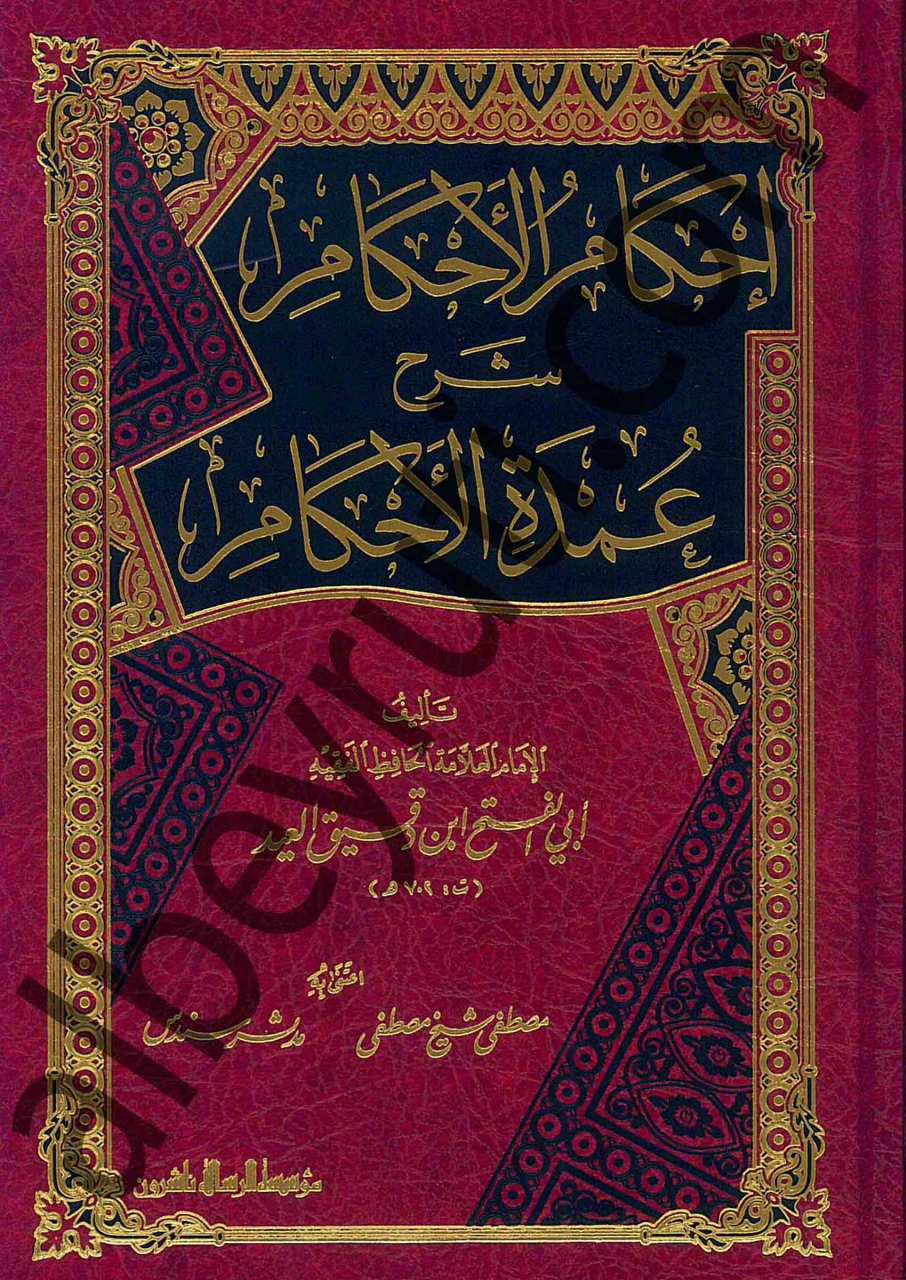 إحكام الأحكام
شرح
عمدة الأحكام
تأليف
الإمام العلامة الحافظ الفقيه
أبي الفتح ابن دقيق العيد
(ت: ٧٠٢ هـ)
اعتنى به
مصطفى شيخ مصطفى مدثر سندس
مؤسسة الرسالة ناشرون
albeyruti.com